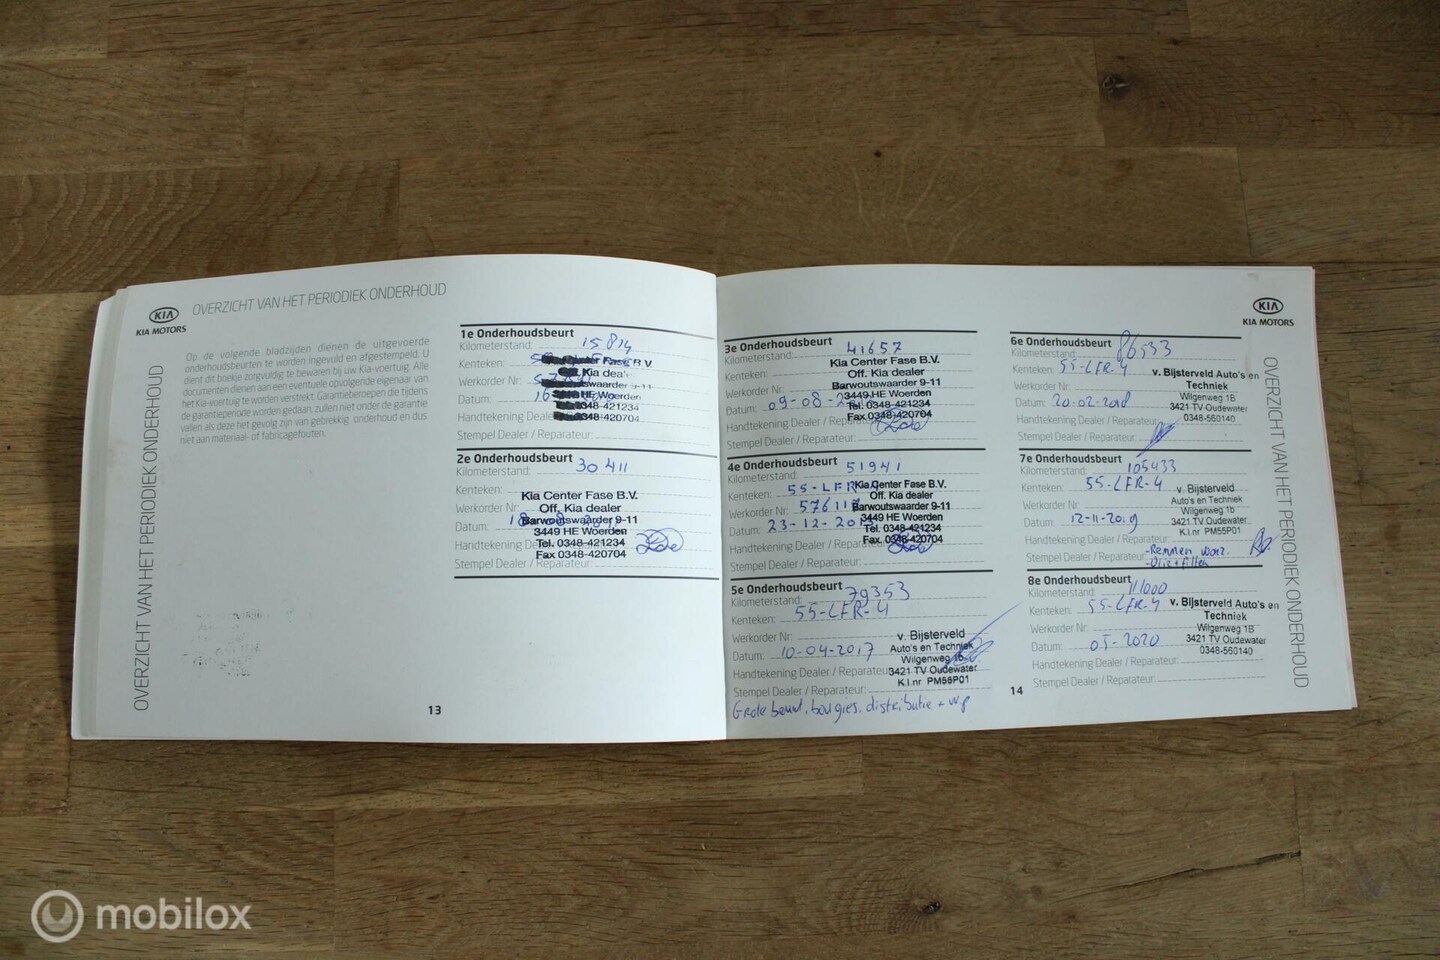 KIA
KIA MOTORS
OVERZICHT VAN HET PERIODIEK ONDERHOUD
OVERZICHT VAN HET PERIODIEK ONDERHOUD
Op de volgende bladzijden dienen de uitgevoerde
onderhoudsbeurten te worden ingevuld en afgestempeld. U
dient dit boekje zorgvuldig te bewaren bij uw Kia-voertuig. Alle
documenten dienen aan een eventuele opvolgende eigenaar van
het Kia-voertuig te worden verstrekt. Garantieberoepen die tijdens
de garantieperiode worden gedaan, zullen niet onder de garantie
vallen als deze het gevolg zijn van gebrekkig onderhoud en dus
niet aan materiaal- of fabricagefouten.
1e Onderhoudsbeurt
Kilometerstand: 15814
Kenteken:
Center Fase B.V.
Kia dea
Werkorder Nr:
swaarder 9-11
Datum: 16
HE Woerden
0348-421234
Handtekening Dealer
0348-420704
Stempel Dealer / Reparateur:
2e Onderhoudsbeurt
Kilometerstand: 30411
Kenteken:
Kia Center Fase B.V.
Werkorder Nr:
Off. Kia dealer
Datum: 18
Barwoutswaarder 9-11
3449 HE Woerden
Handtekening
Tel. 0348-421234
Fax 0348-420704
Stempel Dealer / Reparateur:
13
3e Onderhoudsbeurt
Kilometerstand: 41657
Kia Center Fase B.V.
Kenteken:
Off. Kia dealer
Werkorder Nr:
Barwoutswaarder 9-11
3449 HE Woerden
Datum: 09-08-2
Tel. 0348-421234
Fax 0348-420704
Handtekening Dealer / Reparateur:
Stempel Dealer / Reparateur:
4e Onderhoudsbeurt
Kilometerstand: 51941
Kenteken: 55-LFR-4
Kia Center Fase B.V.
Off. Kia dealer
Werkorder Nr: 57611
Barwoutswaarder 9-11
3449 HE Woerden
Datum: 23-12-20
Tel. 0348-421234
Fax. 0348-420704
Handtekening Dealer / Repara
Stempel Dealer / Reparateur:
5e Onderhoudsbeurt
Kilometerstand: 79353
Kenteken: 55-LFR-4
Werkorder Nr:
v. Bijsterveld
Datum: 10-04-2017
Auto's en Techniek
Wilgenweg 1B
Handtekening Dealer / Reparateur:
3421 TV Oudewater
K.I.nr PM55P01
Stempel Dealer / Reparateur:
Grote beurt, bougies, distributie + wp
14
6e Onderhoudsbeurt
Kilometerstand: 86533
Kenteken: 55-LFR-4
v. Bijsterveld Auto's en
Techniek
Werkorder Nr:
Wilgenweg 1B
Datum: 20-02-2018
3421 TV Oudewater
0348-560140
Handtekening Dealer / Reparateur:
Stempel Dealer / Reparateur:
7e Onderhoudsbeurt
Kilometerstand: 105433
Kenteken: 55-LFR-4
v. Bijsterveld
Auto's en Techniek
Werkorder Nr:
Wilgenweg 1b
Datum: 12-11-2019
3421 TV Oudewater
K.I.nr PM55P01
Handtekening Dealer / Reparateur:
-Remmen voorz.
Stempel Dealer / Reparateur:
-Olie + filter
8e Onderhoudsbeurt
Kilometerstand: 111000
Kenteken: 55-LFR-4
v. Bijsterveld Auto's en
Techniek
Werkorder Nr:
Wilgenweg 1B
Datum: 05-2020
3421 TV Oudewater
0348-560140
Handtekening Dealer / Reparateur:
Stempel Dealer / Reparateur:
KIA
KIA MOTORS
OVERZICHT VAN HET PERIODIEK ONDERHOUD
mobilox